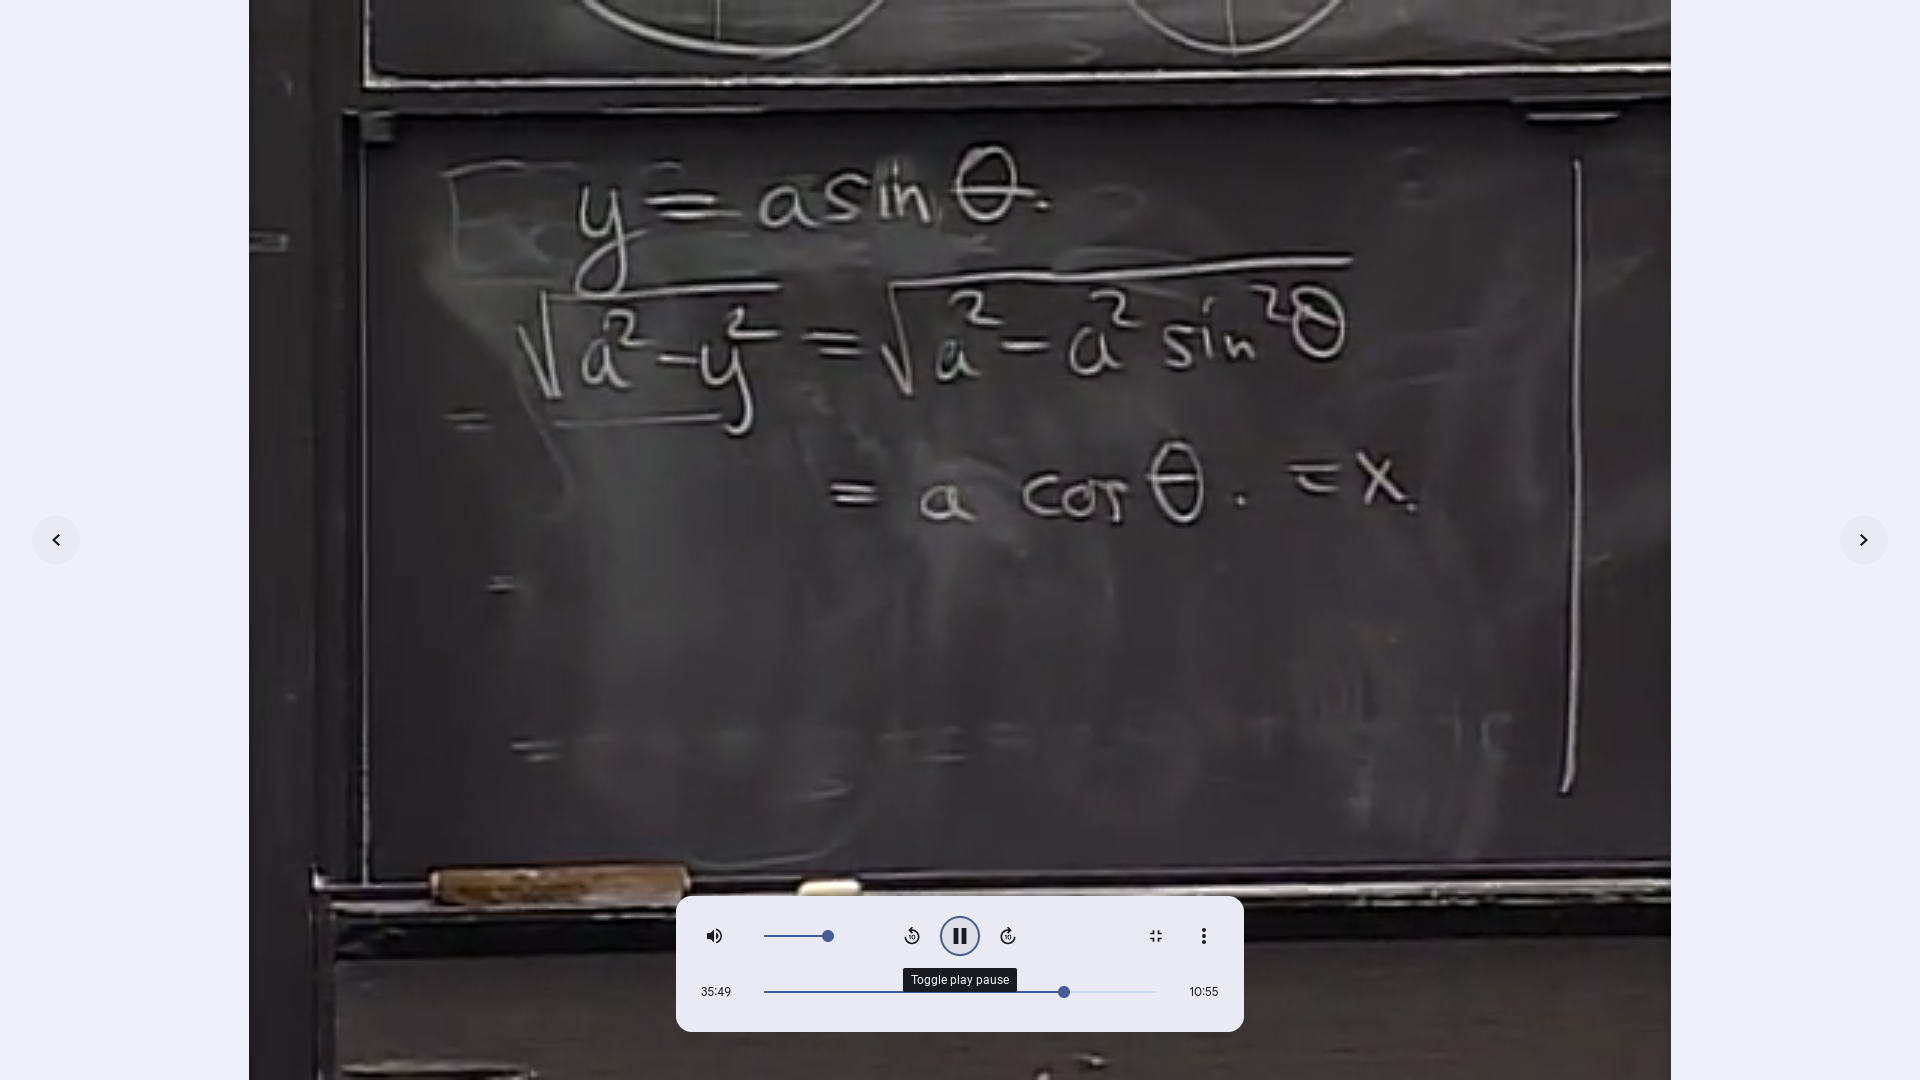 y = a sin θ.
√(a² - y²) = √(a² - a² sin²θ)
=
= a cos θ. = x.
=
=
Toggle play pause
35:49
10:55